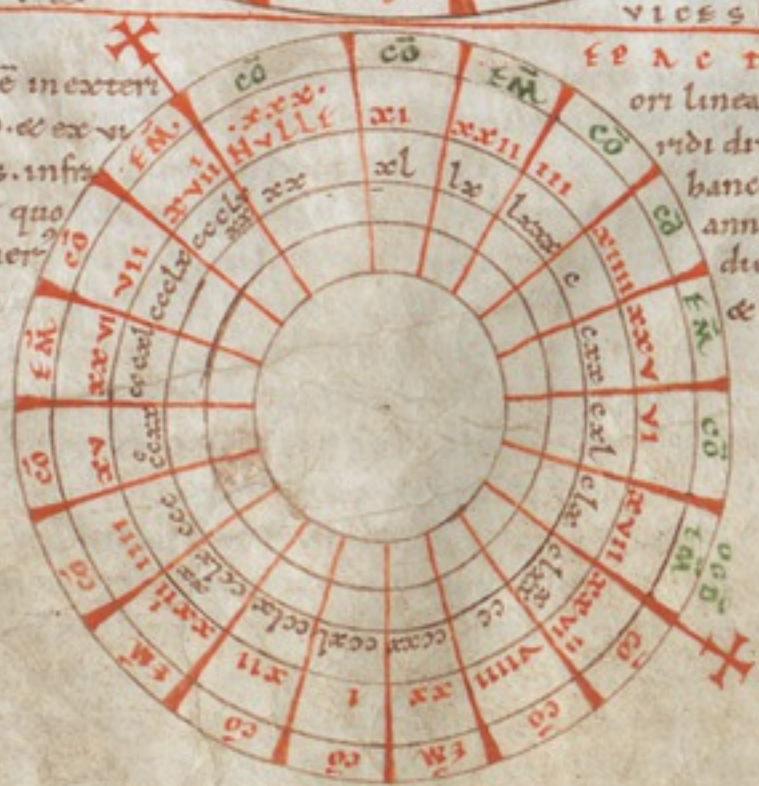 VICES
EPACT
ē inexteri
. & ex vi
s. infra
quo
ori linea
ridi di
hanc
ann
&
cō
cō
EM̄
cō
cō
EM̄
cō
EM̄
OGD
cō
cō
EM̄
cō
cō
EM̄
cō
cō
EM̄
cō
EM̄
·xxx·
NVLLE
xi
xxii
iii
xiiii
xxv
vi
xvii
xxviii
viiii
xx
i
xii
xxiii
iiii
xv
xxvi
vii
xviii
xx
xl
lx
lxxx
c
cxx
cxl
clx
clxxx
cc
ccxx
ccxl
cclx
cclxxx
ccc
cccxx
cccxl
ccclx
ccclxxx